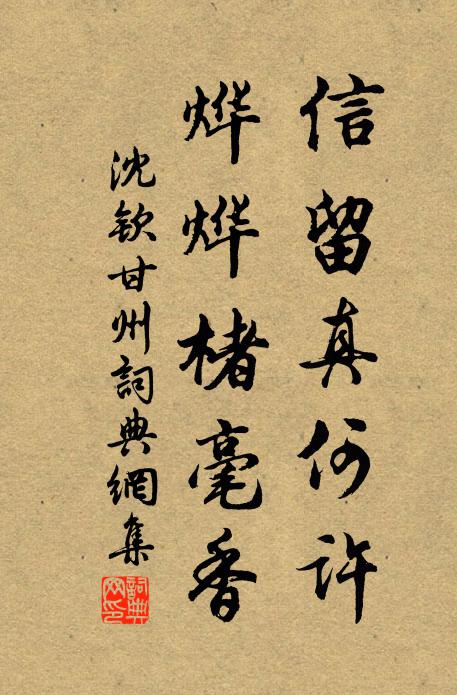 信留真何許
烨烨楮毫香
沈钦甘州詞典網集
詞典网印